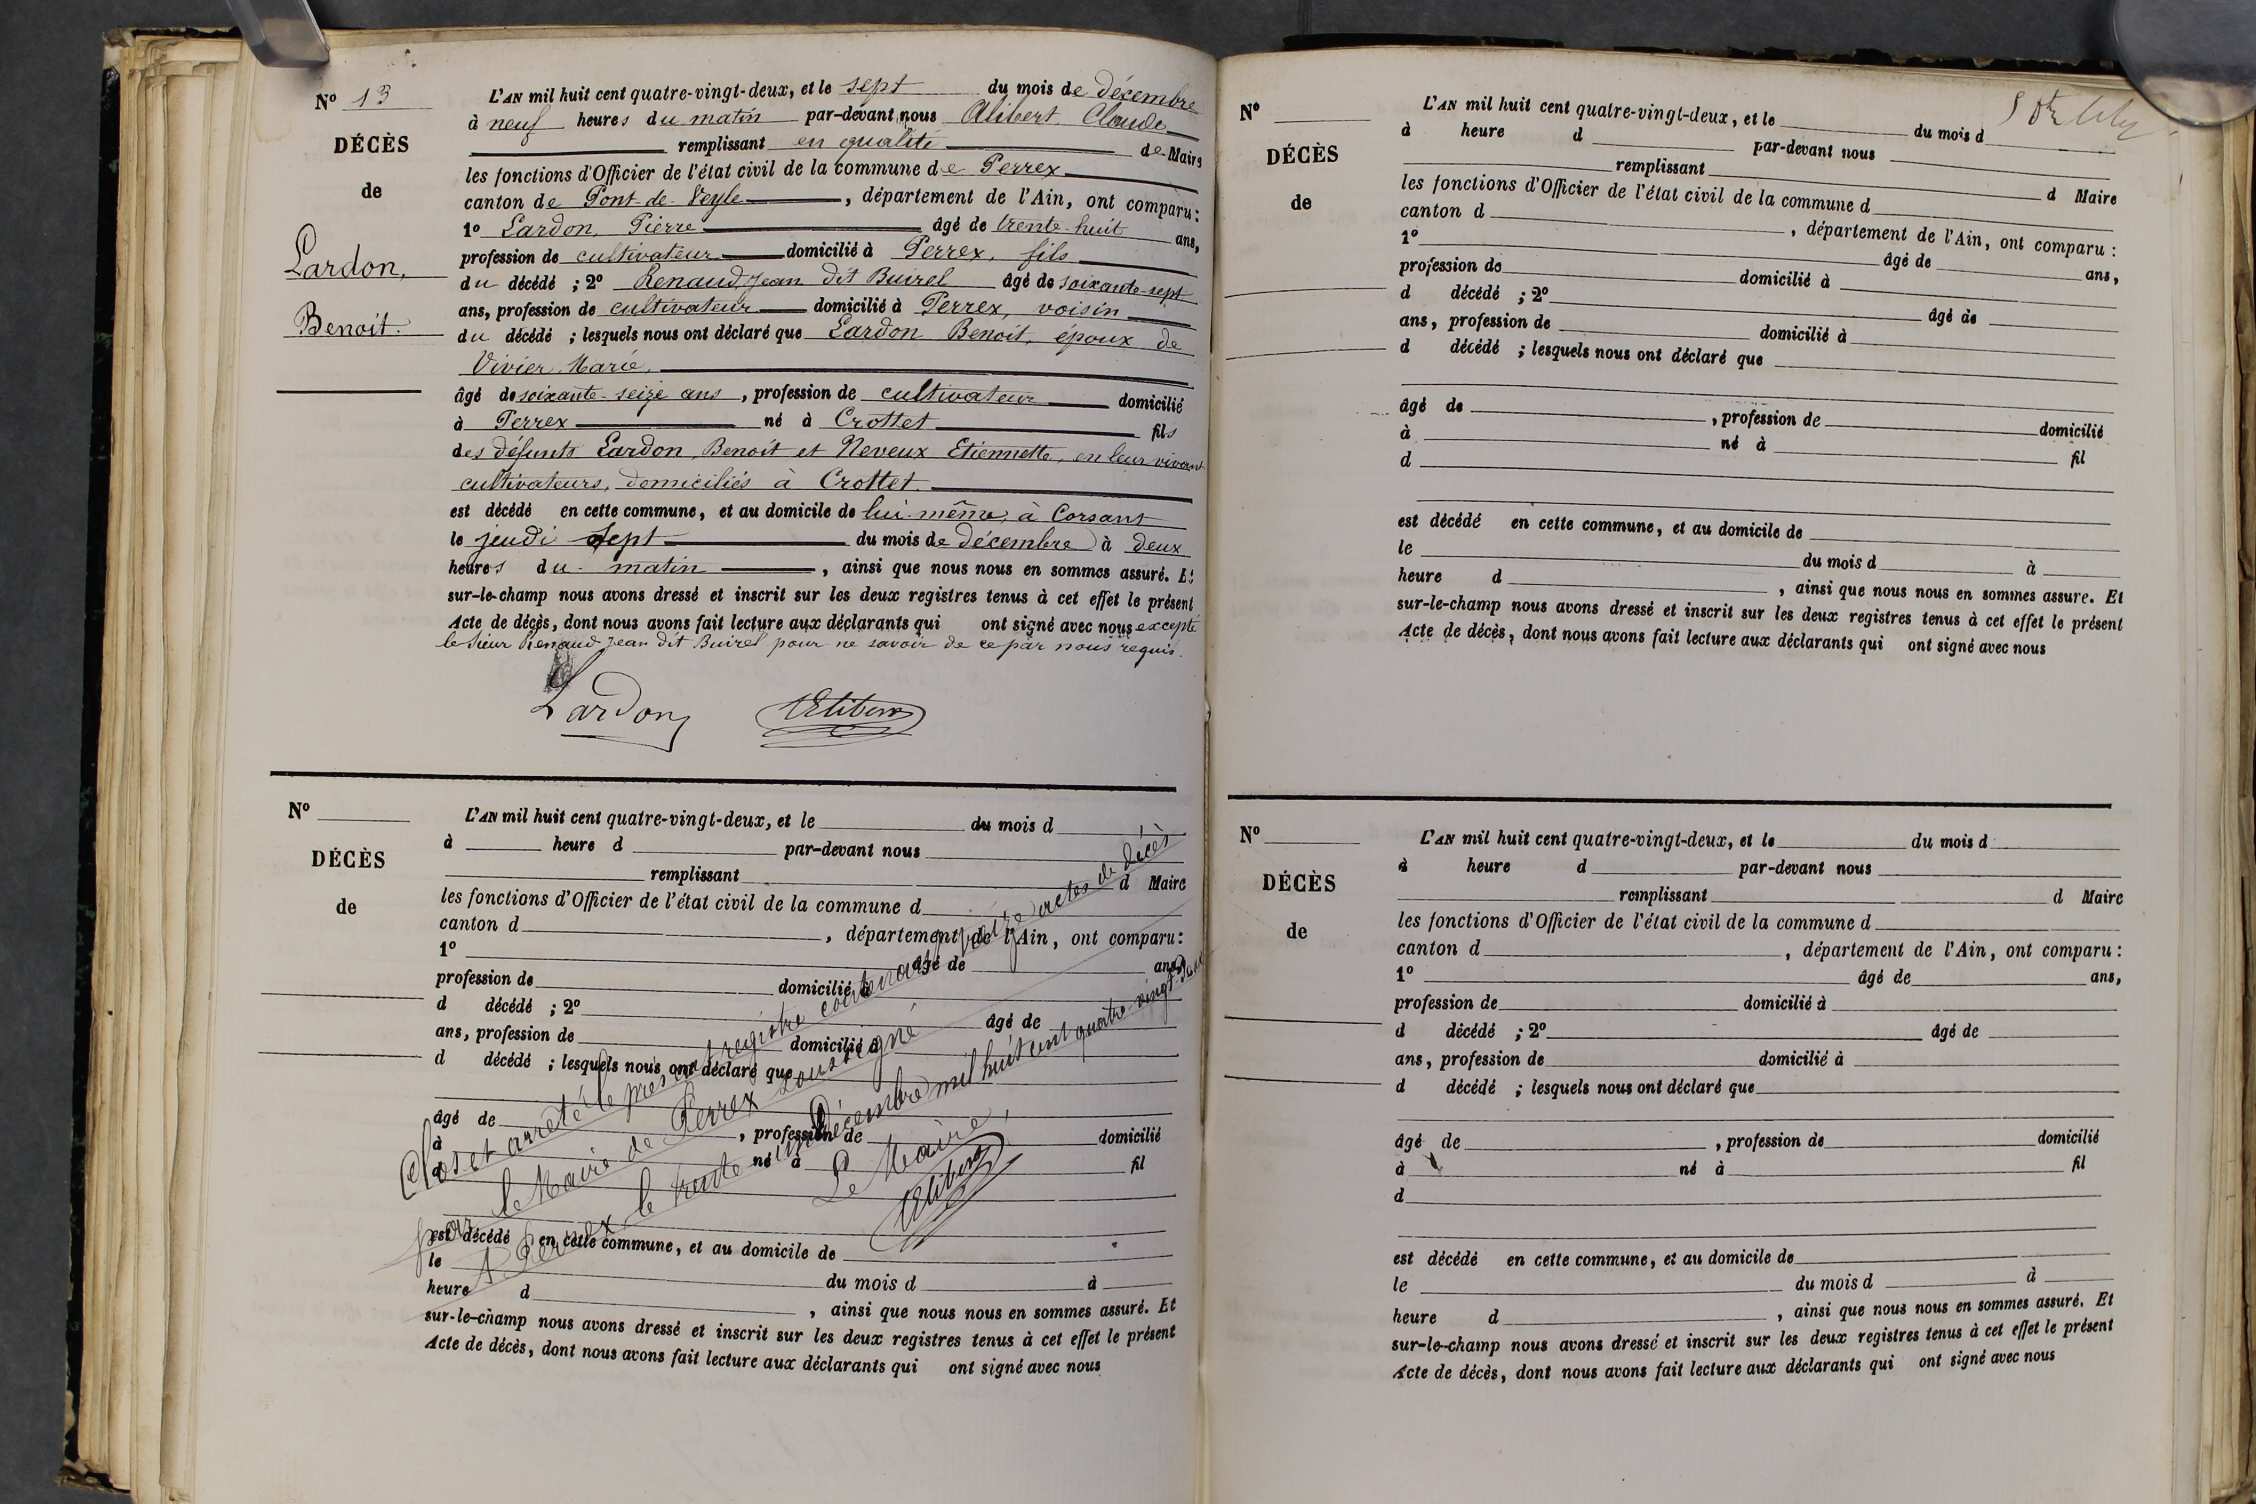 N° 13
DÉCÈS
de
Lardon,
Benoit.
L'AN mil huit cent quatre-vingt-deux, et le sept du mois de décembre
à neuf heures du matin par-devant nous Alibert Claude
remplissant en qualité de Maire
les fonctions d'Officier de l'état civil de la commune de Perrex
canton de Pont-de-Veyle, département de l'Ain, ont comparu :
1° Lardon, Pierre âgé de trente-huit ans,
profession de cultivateur domicilié à Perrex, fils
du décédé ; 2° Renaud Jean dit Buirel âgé de soixante-sept
ans, profession de cultivateur domicilié à Perrex, voisin
du décédé ; lesquels nous ont déclaré que Lardon Benoit, époux de
Vivier Marie,
âgé de soixante-seize ans, profession de cultivateur domicilié
à Perrex né à Crottet fils
des défunts Lardon, Benoit et Neveux Etiennette, en leur vivant
cultivateurs, domiciliés à Crottet.
est décédé en cette commune, et au domicile de lui-même, à Corsant
le jeudi sept du mois de décembre à deux
heures du matin, ainsi que nous nous en sommes assuré. Et
sur-le-champ nous avons dressé et inscrit sur les deux registres tenus à cet effet le présent
Acte de décès, dont nous avons fait lecture aux déclarants qui ont signé avec nous excepté
le sieur Renaud Jean dit Buirel pour ne savoir de ce par nous requis.
Lardon Alibert
N°
DÉCÈS
de
L'AN mil huit cent quatre-vingt-deux, et le du mois d
à heure d par-devant nous
remplissant d Maire
les fonctions d'Officier de l'état civil de la commune d
canton d , département de l'Ain, ont comparu :
1° âgé de ans,
profession de domicilié à
d décédé ; 2° âgé de
ans, profession de domicilié à
d décédé ; lesquels nous ont déclaré que
âgé de , profession de domicilié
à né à fil
d
est décédé en cette commune, et au domicile de
le du mois d à
heure d , ainsi que nous nous en sommes assuré. Et
sur-le-champ nous avons dressé et inscrit sur les deux registres tenus à cet effet le présent
Acte de décès, dont nous avons fait lecture aux déclarants qui ont signé avec nous
Clos et arrêté le présent registre contenant treize actes de décès
par le Maire de Perrex soussigné
A Perrex le trente un Décembre mil huit cent quatre-vingt-deux
Le Maire,
Alibert
N°
DÉCÈS
de
L'AN mil huit cent quatre-vingt-deux, et le du mois d
à heure d par-devant nous
remplissant d Maire
les fonctions d'Officier de l'état civil de la commune d
canton d , département de l'Ain, ont comparu :
1° âgé de ans,
profession de domicilié à
d décédé ; 2° âgé de
ans, profession de domicilié à
d décédé ; lesquels nous ont déclaré que
âgé de , profession de domicilié
à né à fil
d
est décédé en cette commune, et au domicile de
le du mois d à
heure d , ainsi que nous nous en sommes assuré. Et
sur-le-champ nous avons dressé et inscrit sur les deux registres tenus à cet effet le présent
Acte de décès, dont nous avons fait lecture aux déclarants qui ont signé avec nous
N°
DÉCÈS
de
L'AN mil huit cent quatre-vingt-deux, et le du mois d
à heure d par-devant nous
remplissant d Maire
les fonctions d'Officier de l'état civil de la commune d
canton d , département de l'Ain, ont comparu :
1° âgé de ans,
profession de domicilié à
d décédé ; 2° âgé de
ans, profession de domicilié à
d décédé ; lesquels nous ont déclaré que
âgé de , profession de domicilié
à né à fil
d
est décédé en cette commune, et au domicile de
le du mois d à
heure d , ainsi que nous nous en sommes assuré. Et
sur-le-champ nous avons dressé et inscrit sur les deux registres tenus à cet effet le présent
Acte de décès, dont nous avons fait lecture aux déclarants qui ont signé avec nous